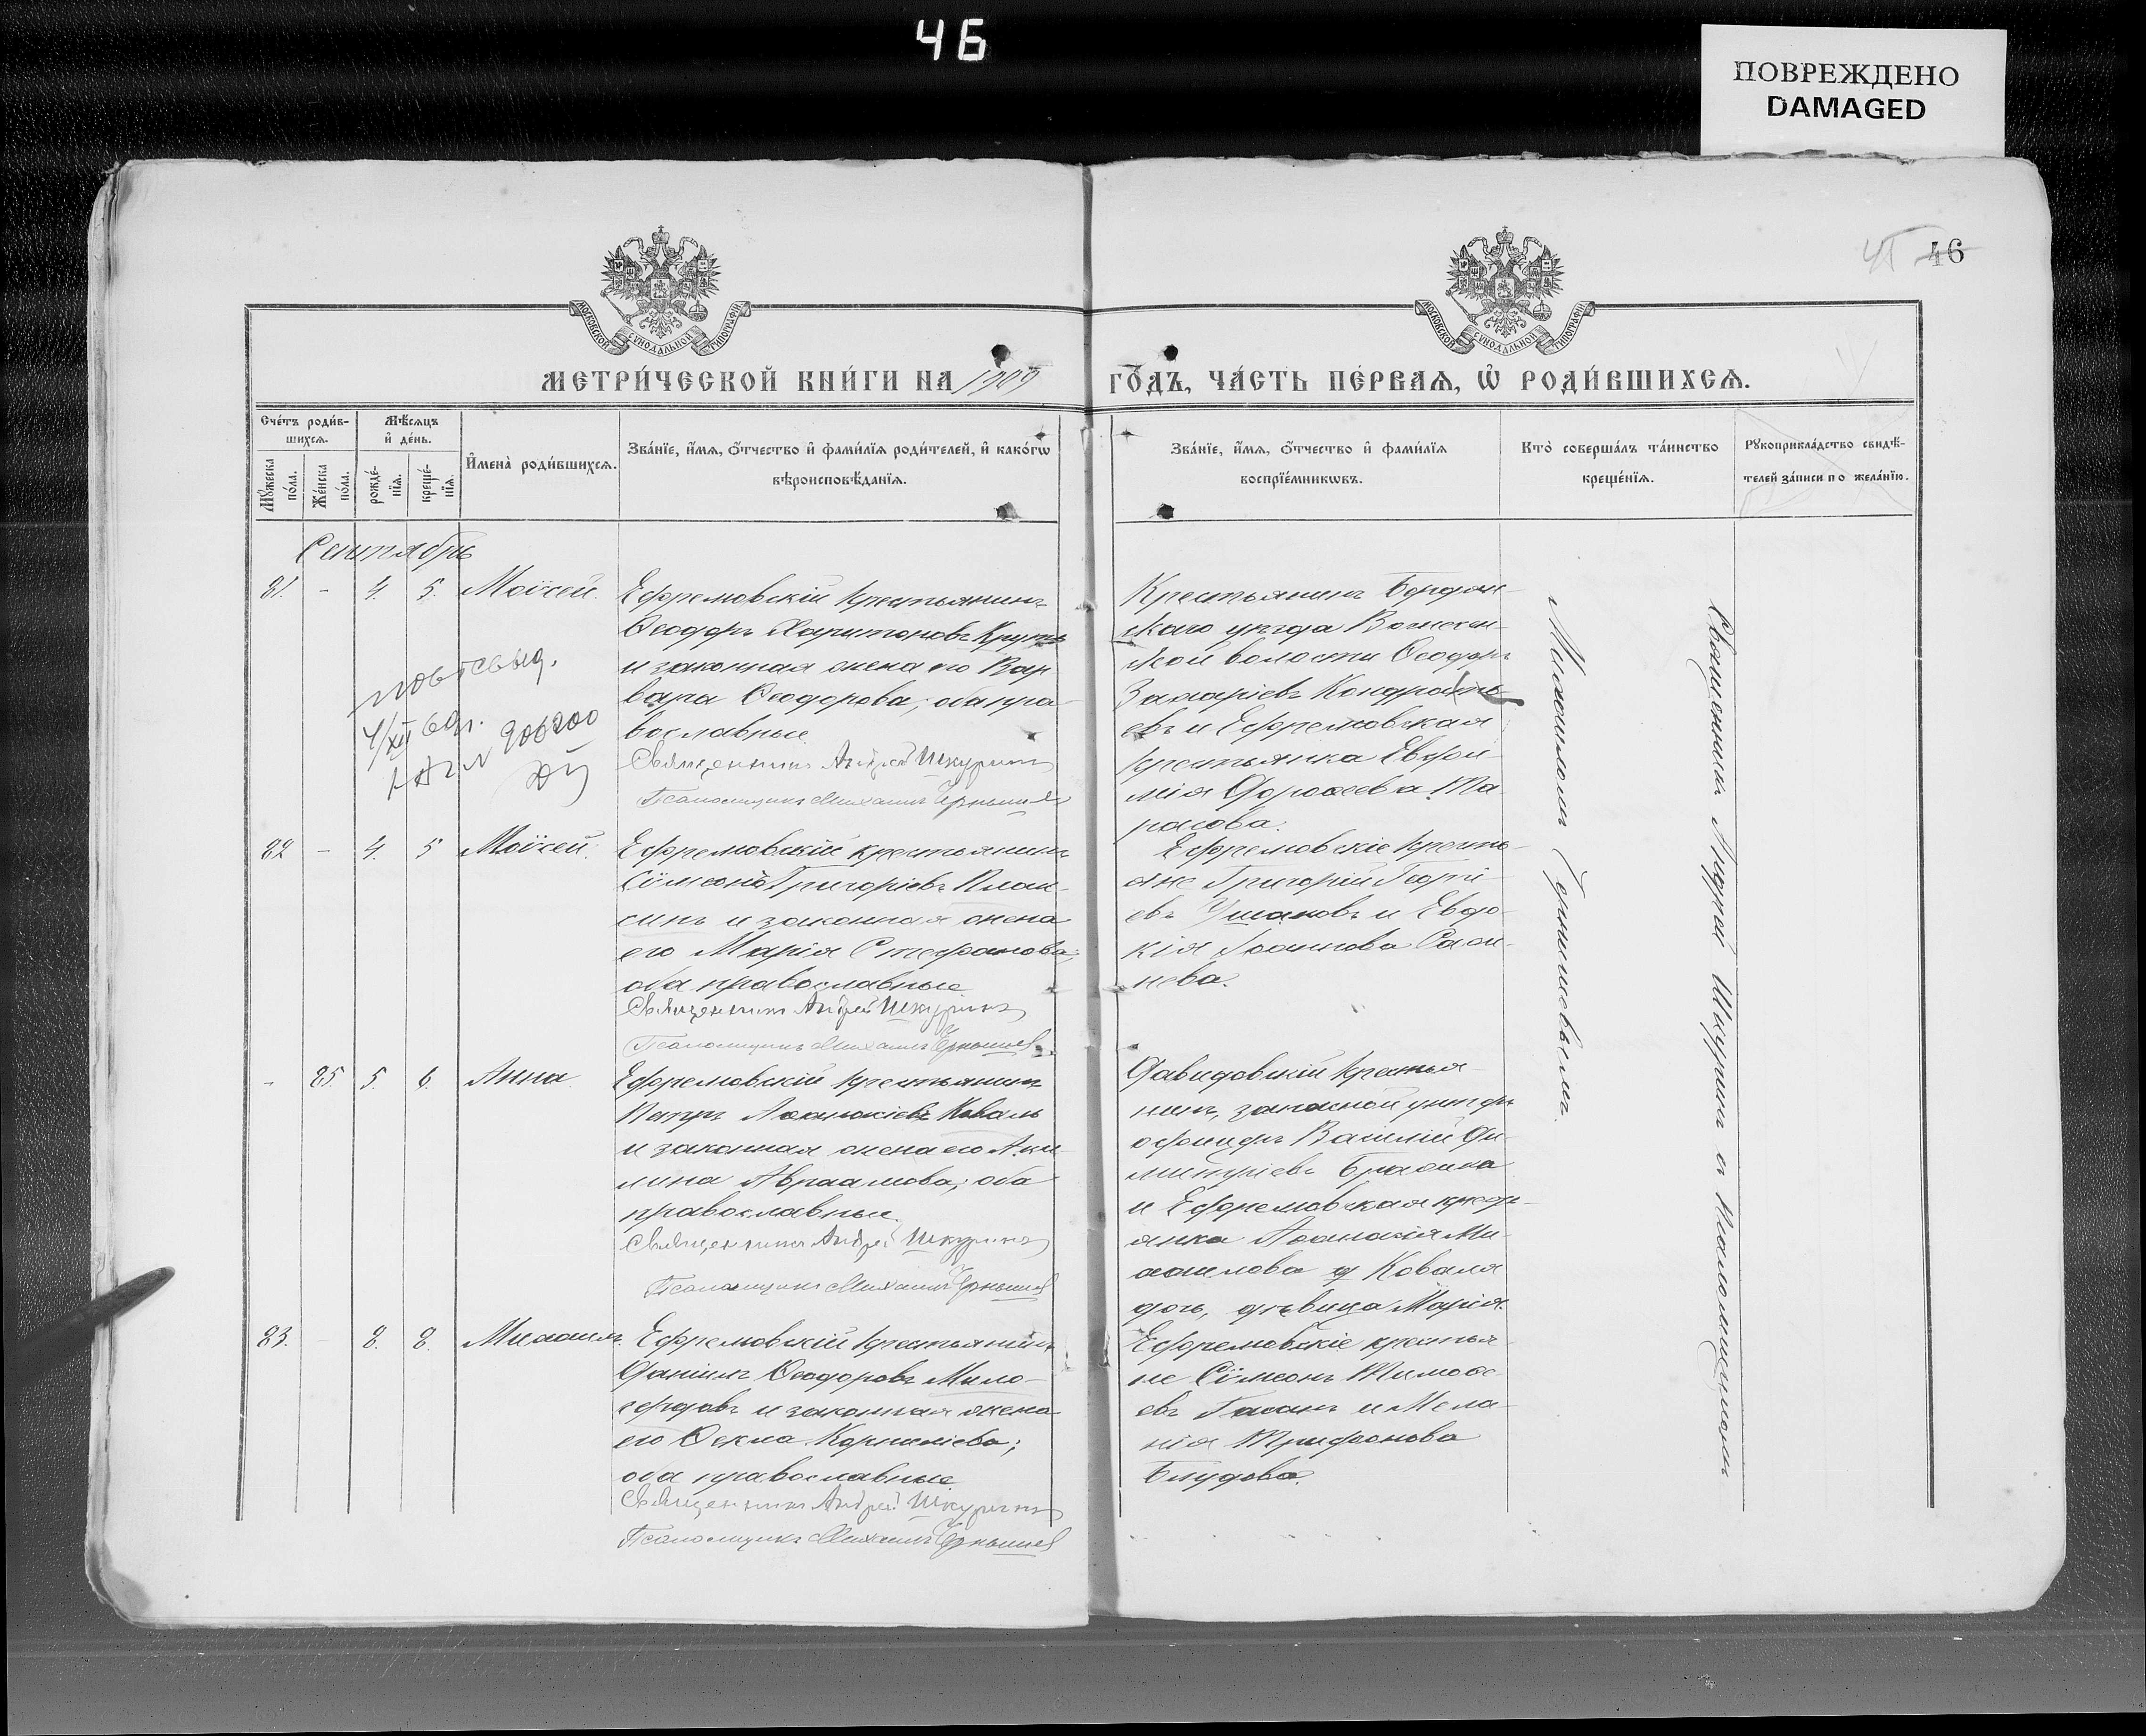 46
ПОВРЕЖДЕНО
DAMAGED
46
МОСКОВСКОЙ СѴНОДАЛЬНОЙ ТИПОГРАФІИ
МОСКОВСКОЙ СѴНОДАЛЬНОЙ ТИПОГРАФІИ
МЕТРИ́ЧЕСКОЙ КНИ́ГИ НА 1909
ГО́ДЪ, ЧА́СТЬ ПЕ́РВАѦ, Ѡ РОДИ́ВШИХСѦ.
Сче́тъ роди́в-
шихсѧ.
Мѣ́сѧцъ
и҆ де́нь.
Мꙋ́жеска
по́ла.
Же́нска
по́ла.
рожде́-
нїѧ.
креще́-
нїѧ.
И҆мена̀ роди́вшихсѧ.
Зва́нїе, и҆́мѧ, ѻ҆́тчество и҆ фами́лїѧ роди́телей, и҆ како́гѡ
вѣроисповѣ́данїѧ.
Зва́нїе, и҆́мѧ, ѻ҆́тчество и҆ фами́лїѧ
воспрїе́мникѡвъ.
Кто̀ соверша́лъ та́инство
креще́нїѧ.
Рꙋкоприкла́дство свидѣ́-
телей за́писи по жела́нїю.
Сентябрь
81. - 4. 5. Моѵсей.
Ефремовскій крестьянинъ
Ѳеодоръ Харитоновъ
и законная жена его Вар
вара Ѳеодорова; оба пра-
вославные
Священникъ Андрей Шкуринъ
Псаломщикъ Михаилъ Чернышев
повт свид.
Крестьянинъ Бердян-
скаго уѣзда Вознесен-
ской волости Ѳеодоръ
Захаріевъ Кондрать-
евъ и Ефремовская
крестьянка Евфи-
мія Дороѳеева Та
расова.
82 - 4. 5 Моѵсей.
Ефремовскій крестьянинъ
Сѵмеонъ Григоріевъ
и законная жена
его Марія Стефанова;
оба православные
Священникъ Андрей Шкуринъ
Псаломщикъ Михаилъ Чернышев
Ефремовскіе кресть-
яне Григорій Георгі-
евъ Ушаковъ и Евдо-
кія Іоаннова
нова.
- 85. 5. 6. Анна
Ефремовскій крестьянинъ
Петръ Аѳанасіевъ Коваль
и законная жена его Аки-
лина Авраамова; оба
православные.
Священникъ Андрей Шкуринъ
Псаломщикъ Михаилъ Чернышев
Давидовскій крестья-
нинъ, запасной унтеръ
офицеръ Василій Ди-
митріевъ
и Ефремовская крест-
янка Аѳанасія Ми-
хаилова Коваля
дочь, дѣвица Марія.
83. - 8. 8. Михаилъ
Ефремовскій крестьянинъ
Даніилъ Ѳеодоровъ Мило-
сердовъ и законная жена
его Ѳекла Корниліева;
оба православные
Священникъ Андрей Шкуринъ
Псаломщикъ Михаилъ Чернышев
Ефремовскіе крестья-
не Сѵмеонъ Тимоѳе-
евъ и Мела-
нія Трифонова
Блудова.
Священникъ Андрей Шкуринъ съ псаломщикомъ
Михаиломъ Чернышевымъ.